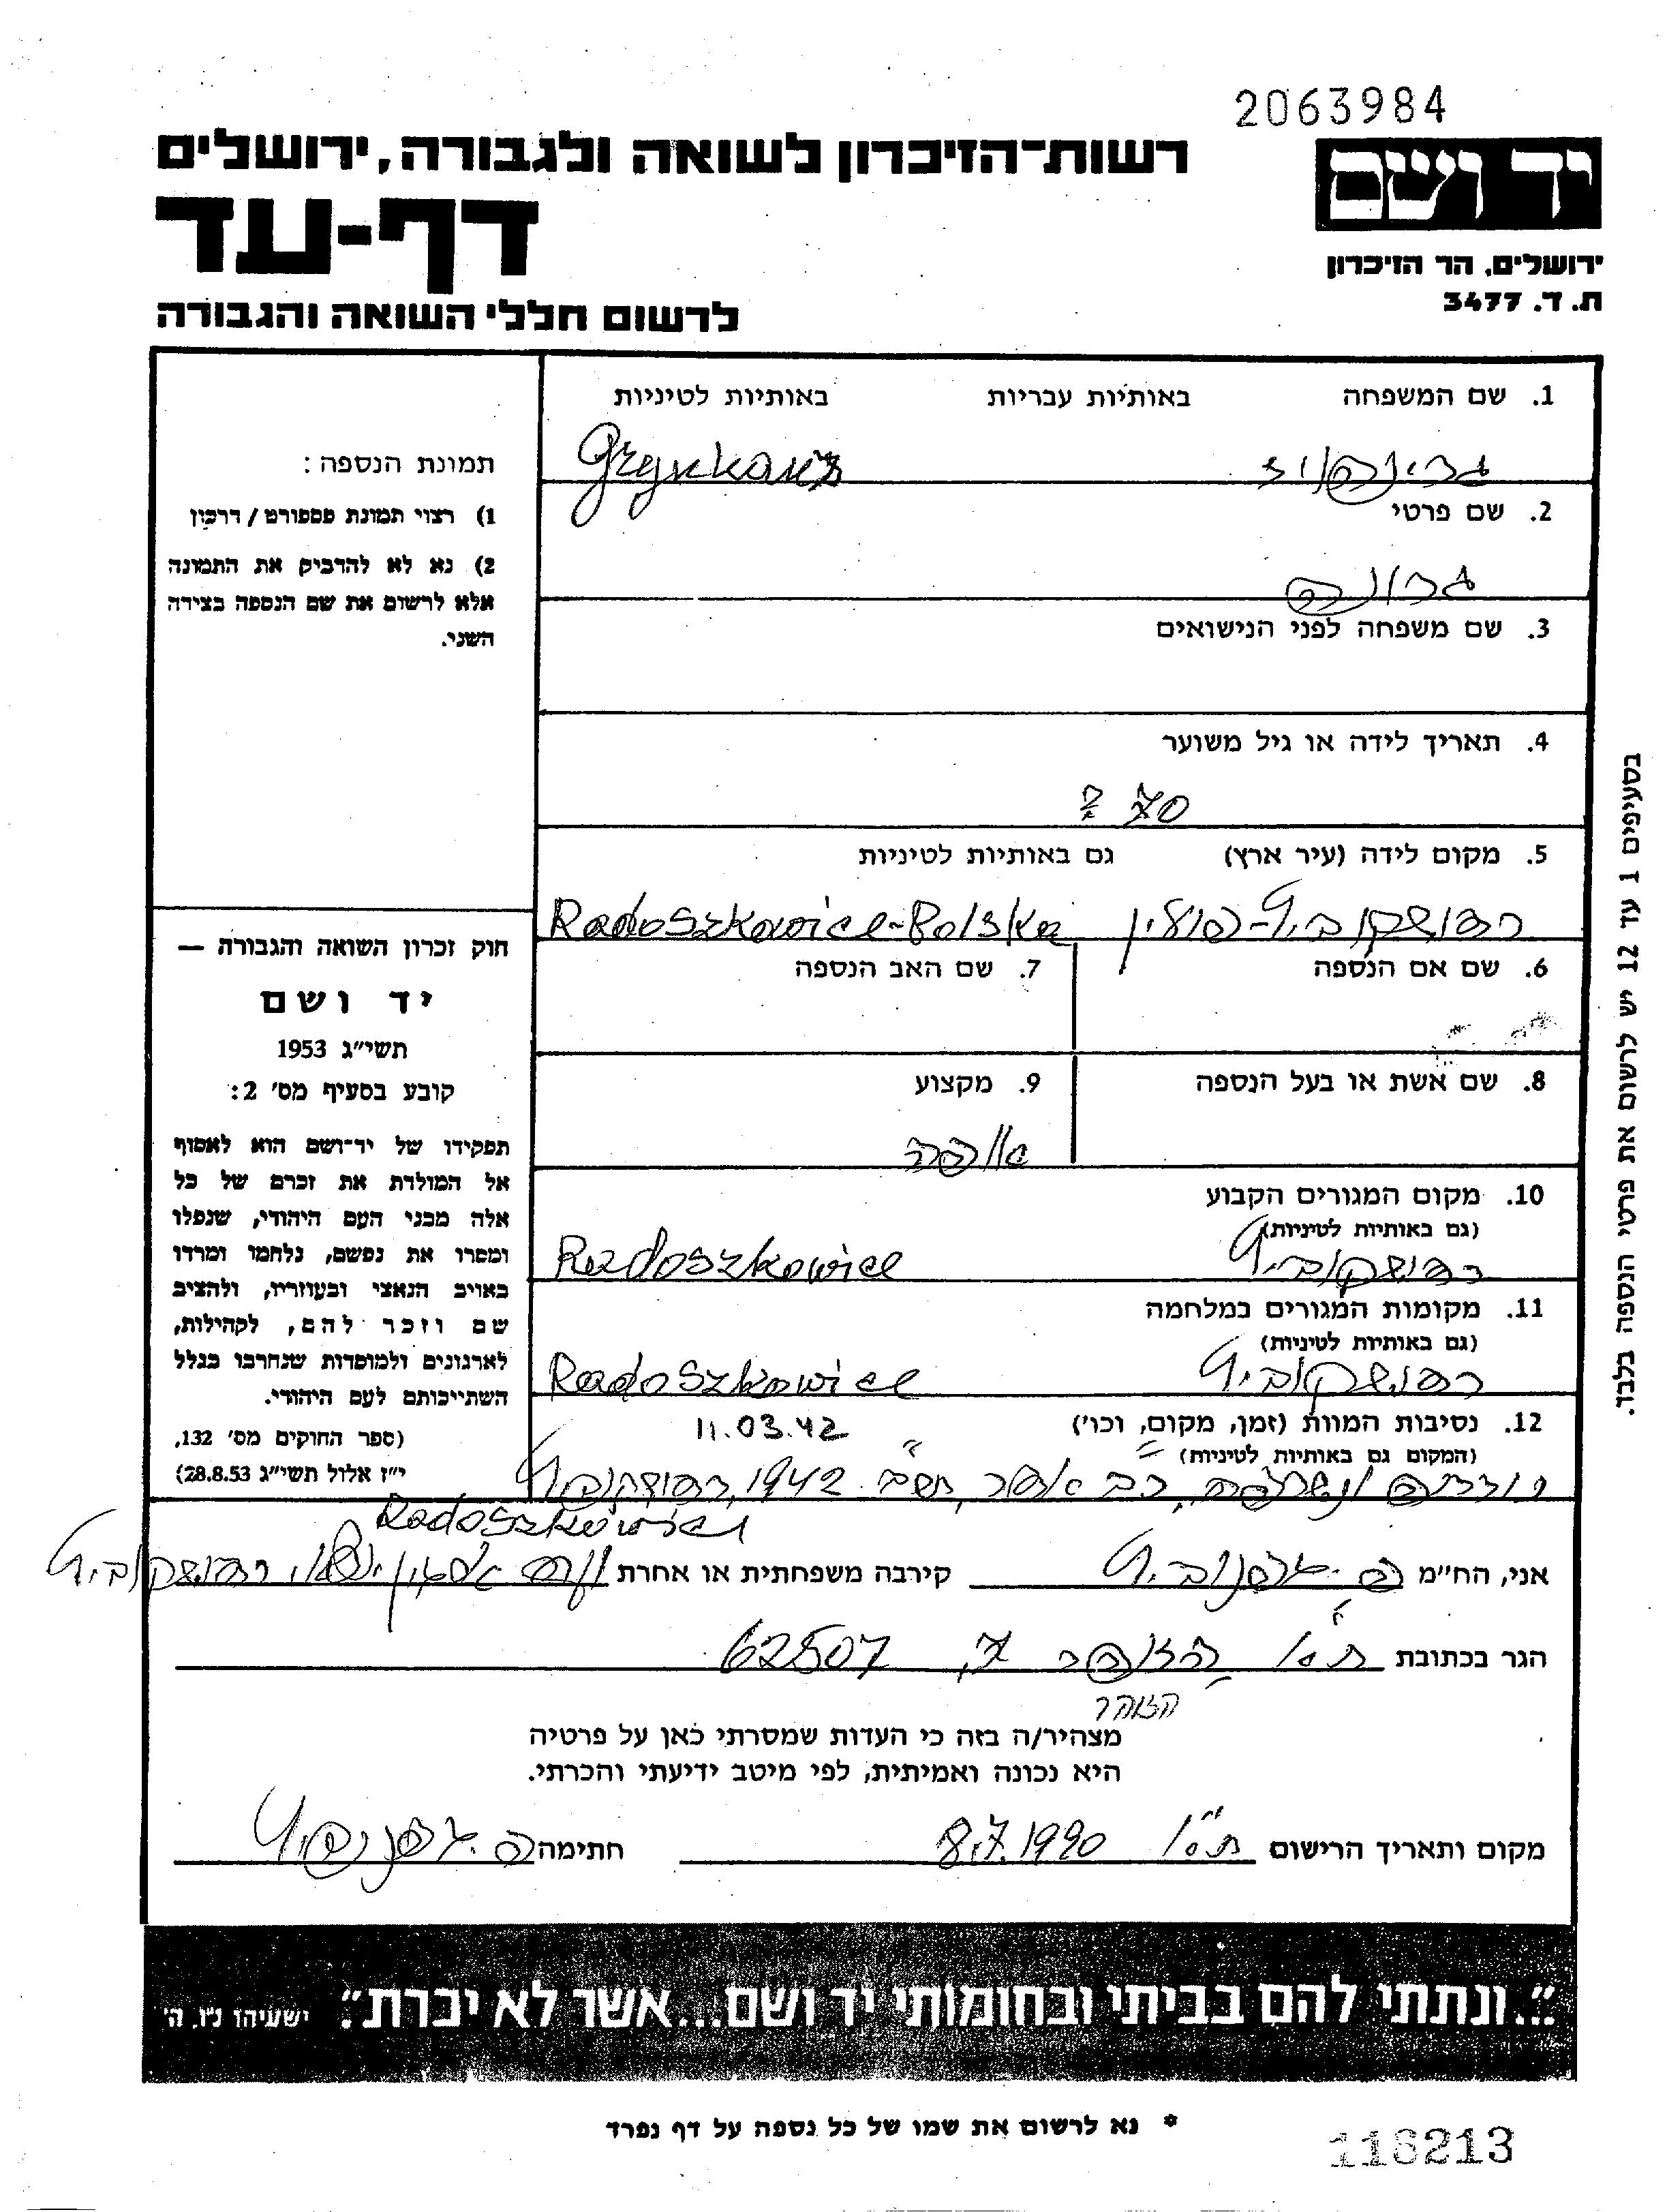 2063984
יד ושם
רשות־הזיכרון לשואה ולגבורה, ירושלים
דף-עד
ירושלים, הר הזיכרון
ת. ד. 3477
לרשום חללי השואה והגבורה
1. שם המשפחה באותיות עבריות באותיות לטיניות
2. שם פרטי
3. שם משפחה לפני הנישואים
4. תאריך לידה או גיל משוער
70 ?
5. מקום לידה (עיר ארץ) גם באותיות לטיניות
רדושקוביץ-פולין Radoszkowice-Polska
6. שם אם הנספה 7. שם האב הנספה
8. שם אשת או בעל הנספה 9. מקצוע
אופה
10. מקום המגורים הקבוע
(גם באותיות לטיניות)
רדושקוביץ Radoszkowice
11. מקומות המגורים במלחמה
(גם באותיות לטיניות)
רדושקוביץ Radoszkowice
12. נסיבות המוות (זמן, מקום, וכו') 11.03.42
(המקום גם באותיות לטיניות)
נורתה ונשרפה, כב אדר, תש"ב 1942, רדושקוביץ
Radoszkowice
תמונת הנספה:
1) רצוי תמונת פספורט / דרכון
2) נא לא להדביק את התמונה
אלא לרשום את שם הנספה בצידה
השני.
חוק זכרון השואה והגבורה —
יד ושם
תשי״ג 1953
קובע בסעיף מס' 2:
תפקידו של יד־ושם הוא לאסוף
אל המולדת את זכרם של כל
אלה מבני העם היהודי, שנפלו
ומסרו את נפשם, נלחמו ומרדו
באויב הנאצי ובעוזריו, ולהציב
שם וזכר להם, לקהילות,
לארגונים ולמוסדות שנחרבו בגלל
השתייכותם לעם היהודי.
(ספר החוקים מס' 132,
י״ז אלול תשי״ג 28.8.53)
בסעיפים 1 עד 12 יש לרשום את פרטי הנספה בלבד.
אני, הח״מ קירבה משפחתית או אחרת ועד ארגון יוצאי רדושקוביץ
הגר בכתובת ת"א הזוהר 7, 62507
הזוהר
מצהיר/ה בזה כי העדות שמסרתי כאן על פרטיה
היא נכונה ואמיתית, לפי מיטב ידיעתי והכרתי.
מקום ותאריך הרישום ת"א 8.7.1990 חתימה
״...ונתתי להם בביתי ובחומותי יד ושם...אשר לא יכרת״. ישעיהו נ״ו, ה'
* נא לרשום את שמו של כל נספה על דף נפרד
116213